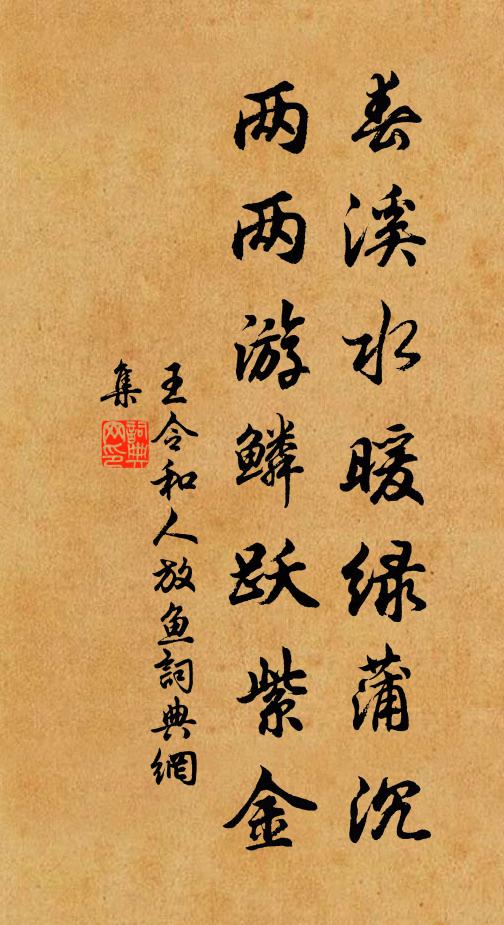 春溪水暖绿蒲沉
两两游鳞跃紫金
王令和人放鱼詞典網
集
詞典
网印